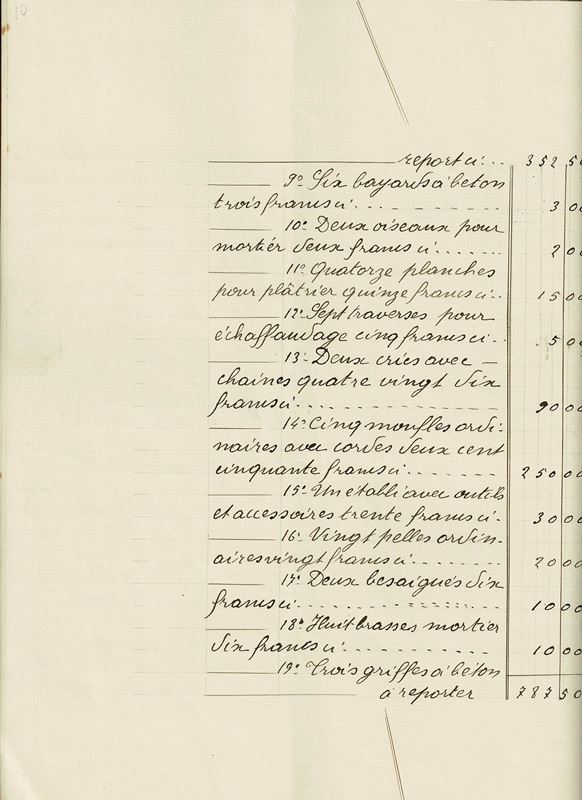 10
report ci... 352 50
9° Six bayards à beton
trois francs ci........ 3 00
10° Deux oiseaux pour
mortier deux francs ci....... 2 00
11° Quatorze planches
pour plâtrier quinze francs ci.. 15 00
12° Sept traverses pour
échaffaudage cinq francs ci.. 5 00
13° Deux crics avec —
chaines quatre vingt dix
francs ci.............. 90 00
14° Cinq moufles ordi-
naires avec cordes deux cent
cinquante francs ci........ 250 00
15° Un établi avec outils
et accessoires trente francs ci. 30 00
16° Vingt pelles ordin-
aires vingt francs ci....... 20 00
17° Deux besaiguës dix
francs ci.............. 10 00
18° Huit brasses mortier
dix francs ci........... 10 00
19° Trois griffes à béton
à reporter 787 50